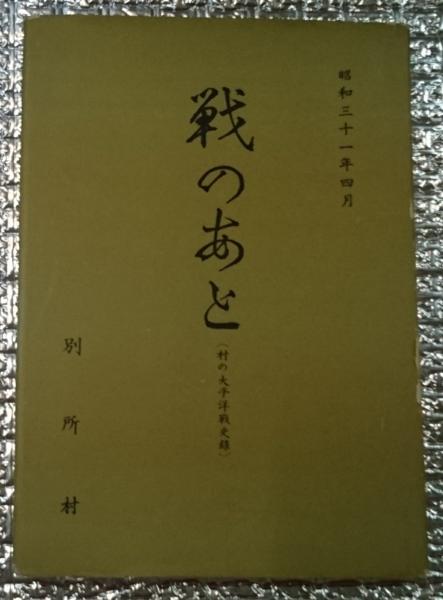 昭和三十一年四月
戦のあと
（村の太平洋戦史録）
別所村